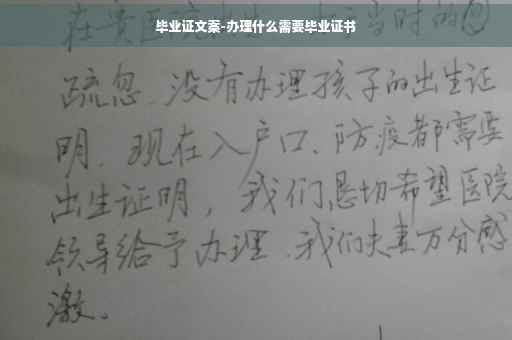 毕业证文案-办理什么需要毕业证书
当时的
疏忽、没有办理孩子的出生证
明、现在入户口、防疫都需要
出生证明，我们恳切希望医院
领导给予办理、我们夫妻万分感
激。